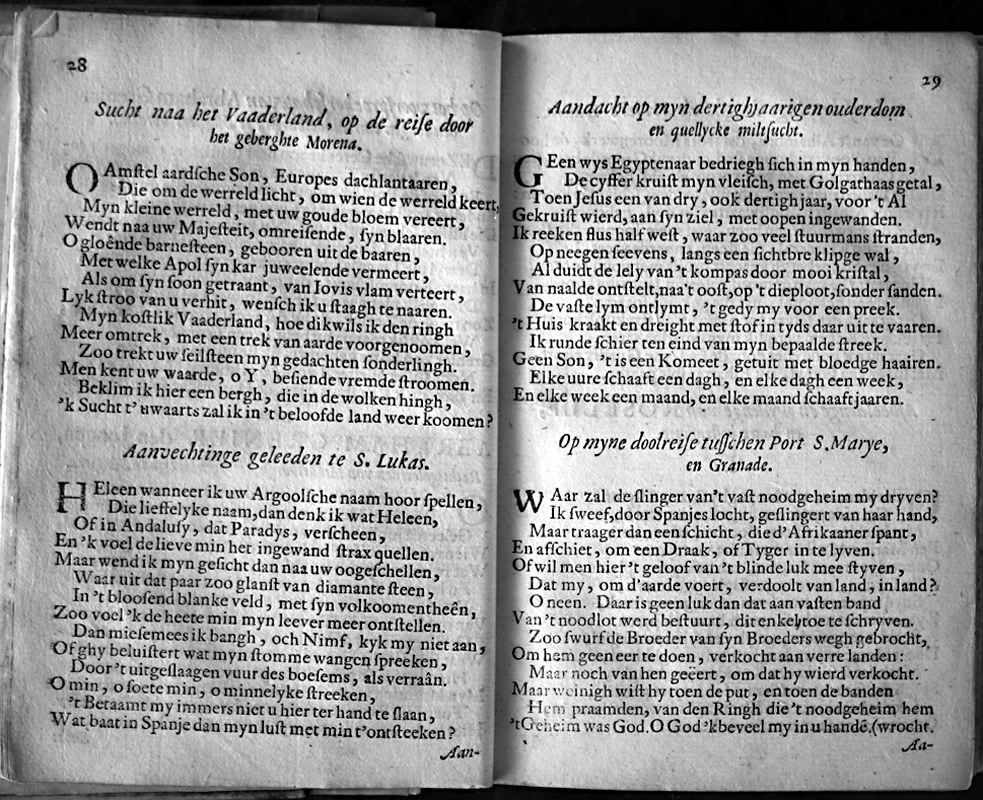 28
Sucht naa het Vaaderland, op de reiſe door
het geberghte Morena.
O Amſtel aardſche Son, Europes dachlantaaren,
Die om de werreld licht, om wien de werreld keert,
Myn kleine werreld, met uw goude bloem vereert,
Wendt naa uw Majeſteit, omreiſende, ſyn blaaren.
O gloênde barneſteen, gebooren uit de baaren,
Met welke Apol ſyn kar juweelende vermeert,
Als om ſyn ſoon getraant, van Iovis vlam verteert,
Lyk ſtroo van u verhit, wenſch ik u ſtaagh te naaren.
Myn koſtlik Vaaderland, hoe dikwils ik den ringh
Meer omtrek, met een trek van aarde voorgenoomen,
Zoo trekt uw ſeilſteen myn gedachten ſonderlingh.
Men kent uw waarde, o Y, beſiende vremde ſtroomen.
Beklim ik hier een bergh, die in de wolken hingh,
'k Sucht t' uwaarts zal ik in 't beloofde land weer koomen?
Aanvechtinge geleeden te S. Lukas.
HEleen wanneer ik uw Argoolſche naam hoor ſpellen,
Die lieffelyke naam, dan denk ik wat Heleen,
Of in Andaluſy, dat Paradys, verſcheen,
En 'k voel de lieve min het ingewand ſtrax quellen.
Maar wend ik myn geſicht dan naa uw oogeſchellen,
Waar uit dat paar zoo glanſt van diamante ſteen,
In 't blooſend blanke veld, met ſyn volkoomentheên,
Zoo voel 'k de heete min myn leever meer ontſtellen.
Dan mieſemees ik bangh, och Nimf, kyk my niet aan,
Of ghy beluiſtert wat myn ſtomme wangen ſpreeken,
Door 't uitgeſlaagen vuur des boeſems, als verraân.
O min, o ſoete min, o minnelyke ſtreeken,
't Betaamt my immers niet u hier ter hand te ſlaan,
Wat baat in Spanje dan myn luſt met min t'ontſteeken?
Aan-
29
Aandacht op myn dertighjaarigen ouderdom
en quellycke miltſucht.
GEen wys Egyptenaar bedriegh ſich in myn handen,
De cyffer kruiſt myn vleiſch, met Golgathaas getal,
Toen Jeſus een van dry, ook dertigh jaar, voor 't Al
Gekruiſt wierd, aan ſyn ziel, met oopen ingewanden.
Ik reeken flus half weſt, waar zoo veel ſtuurmans ſtranden,
Op neegen ſeevens, langs een ſichtbre klipge wal,
Al duidt de lely van 't kompas door mooi kriſtal,
Van naalde ontſtelt, naa't ooſt, op 't dieploot, ſonder ſanden.
De vaſte lym ontlymt, 't gedy my voor een preek.
't Huis kraakt en dreight met ſtof in tyds daar uit te vaaren.
Ik runde ſchier ten eind van myn bepaalde ſtreek.
Geen Son, 't is een Komeet, getuit met bloedge haairen.
Elke uure ſchaaft een dagh, en elke dagh een week,
En elke week een maand, en elke maand ſchaaft jaaren.
Op myne doolreiſe tuſſchen Port S. Marye,
en Granade.
WAar zal de ſlinger van't vaſt noodgeheim my dryven?
Ik ſweef, door Spanjes locht, geſlingert van haar hand,
Maar traager dan een ſchicht, die d'Afrikaaner ſpant,
En afſchiet, om een Draak, of Tyger in te lyven.
Of wil men hier 't geloof van 't blinde luk mee ſtyven,
Dat my, om d'aarde voert, verdoolt van land, in land?
O neen. Daar is geen luk dan dat aan vaſten band
Van 't noodlot werd beſtuurt, dit enkel toe te ſchryven.
Zoo ſwurf de Broeder van ſyn Broeders wegh gebrocht,
Om hem geen eer te doen, verkocht aan verre landen:
Maar noch van hen geëert, om dat hy wierd verkocht.
Maar weinigh wiſt hy toen de put, en toen de banden
Hem praamden, van den Ringh die 't noodgeheim hem
't Geheim was God. O God 'k beveel my in u handē. (wrocht.
Aa-